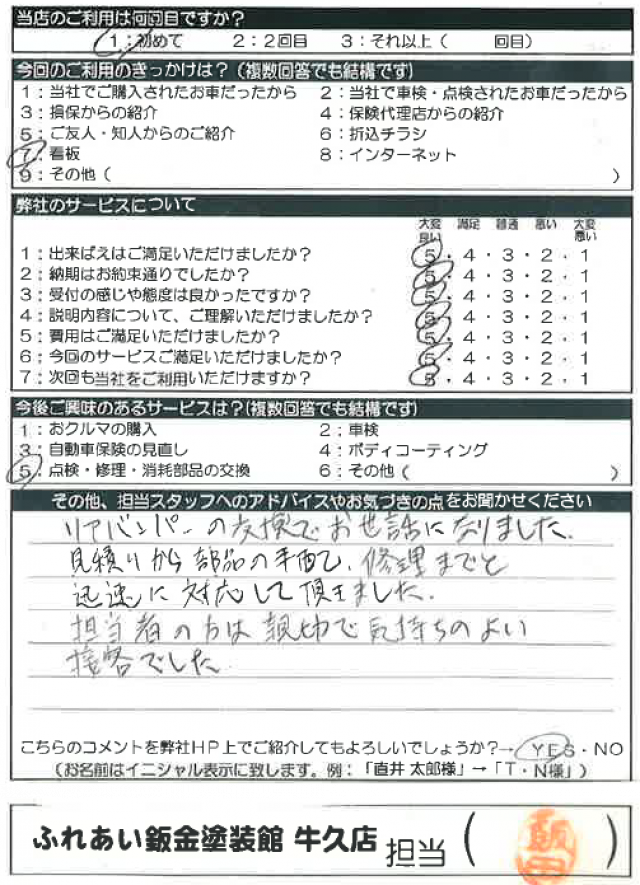 当店のご利用は何回目ですか？
1：初めて　2：2回目　3：それ以上（　　回目）
今回のご利用のきっかけは？（複数回答でも結構です）
1：当社でご購入されたお車だったから　2：当社で車検・点検されたお車だったから
3：損保からの紹介　4：保険代理店からの紹介
5：ご友人・知人からのご紹介　6：折込チラシ
7：看板　8：インターネット
9：その他（　　）
弊社のサービスについて
大変良い　満足　普通　悪い　大変悪い
1：出来ばえはご満足いただけましたか？　5・4・3・2・1
2：納期はお約束通りでしたか？　5・4・3・2・1
3：受付の感じや態度は良かったですか？　5・4・3・2・1
4：説明内容について、ご理解いただけましたか？　5・4・3・2・1
5：費用はご満足いただけましたか？　5・4・3・2・1
6：今回のサービスご満足いただけましたか？　5・4・3・2・1
7：次回も当社をご利用いただけますか？　5・4・3・2・1
今後ご興味のあるサービスは？（複数回答でも結構です）
1：おクルマの購入　2：車検
3：自動車保険の見直し　4：ボディコーティング
5：点検・修理・消耗部品の交換　6：その他（　　）
その他、担当スタッフへのアドバイスやお気づきの点をお聞かせください
リアバンパーの交換でお世話になりました。
見積りから部品の手配、修理までと
迅速に対応して頂きました。
担当者の方は親切で気持ちのよい
接客でした
こちらのコメントを弊社HP上でご紹介してもよろしいでしょうか？→ YES・NO
（お名前はイニシャル表示に致します。例：「直井 太郎様」→「T・N様」）
ふれあい鈑金塗装館 牛久店 担当（　飯田　）